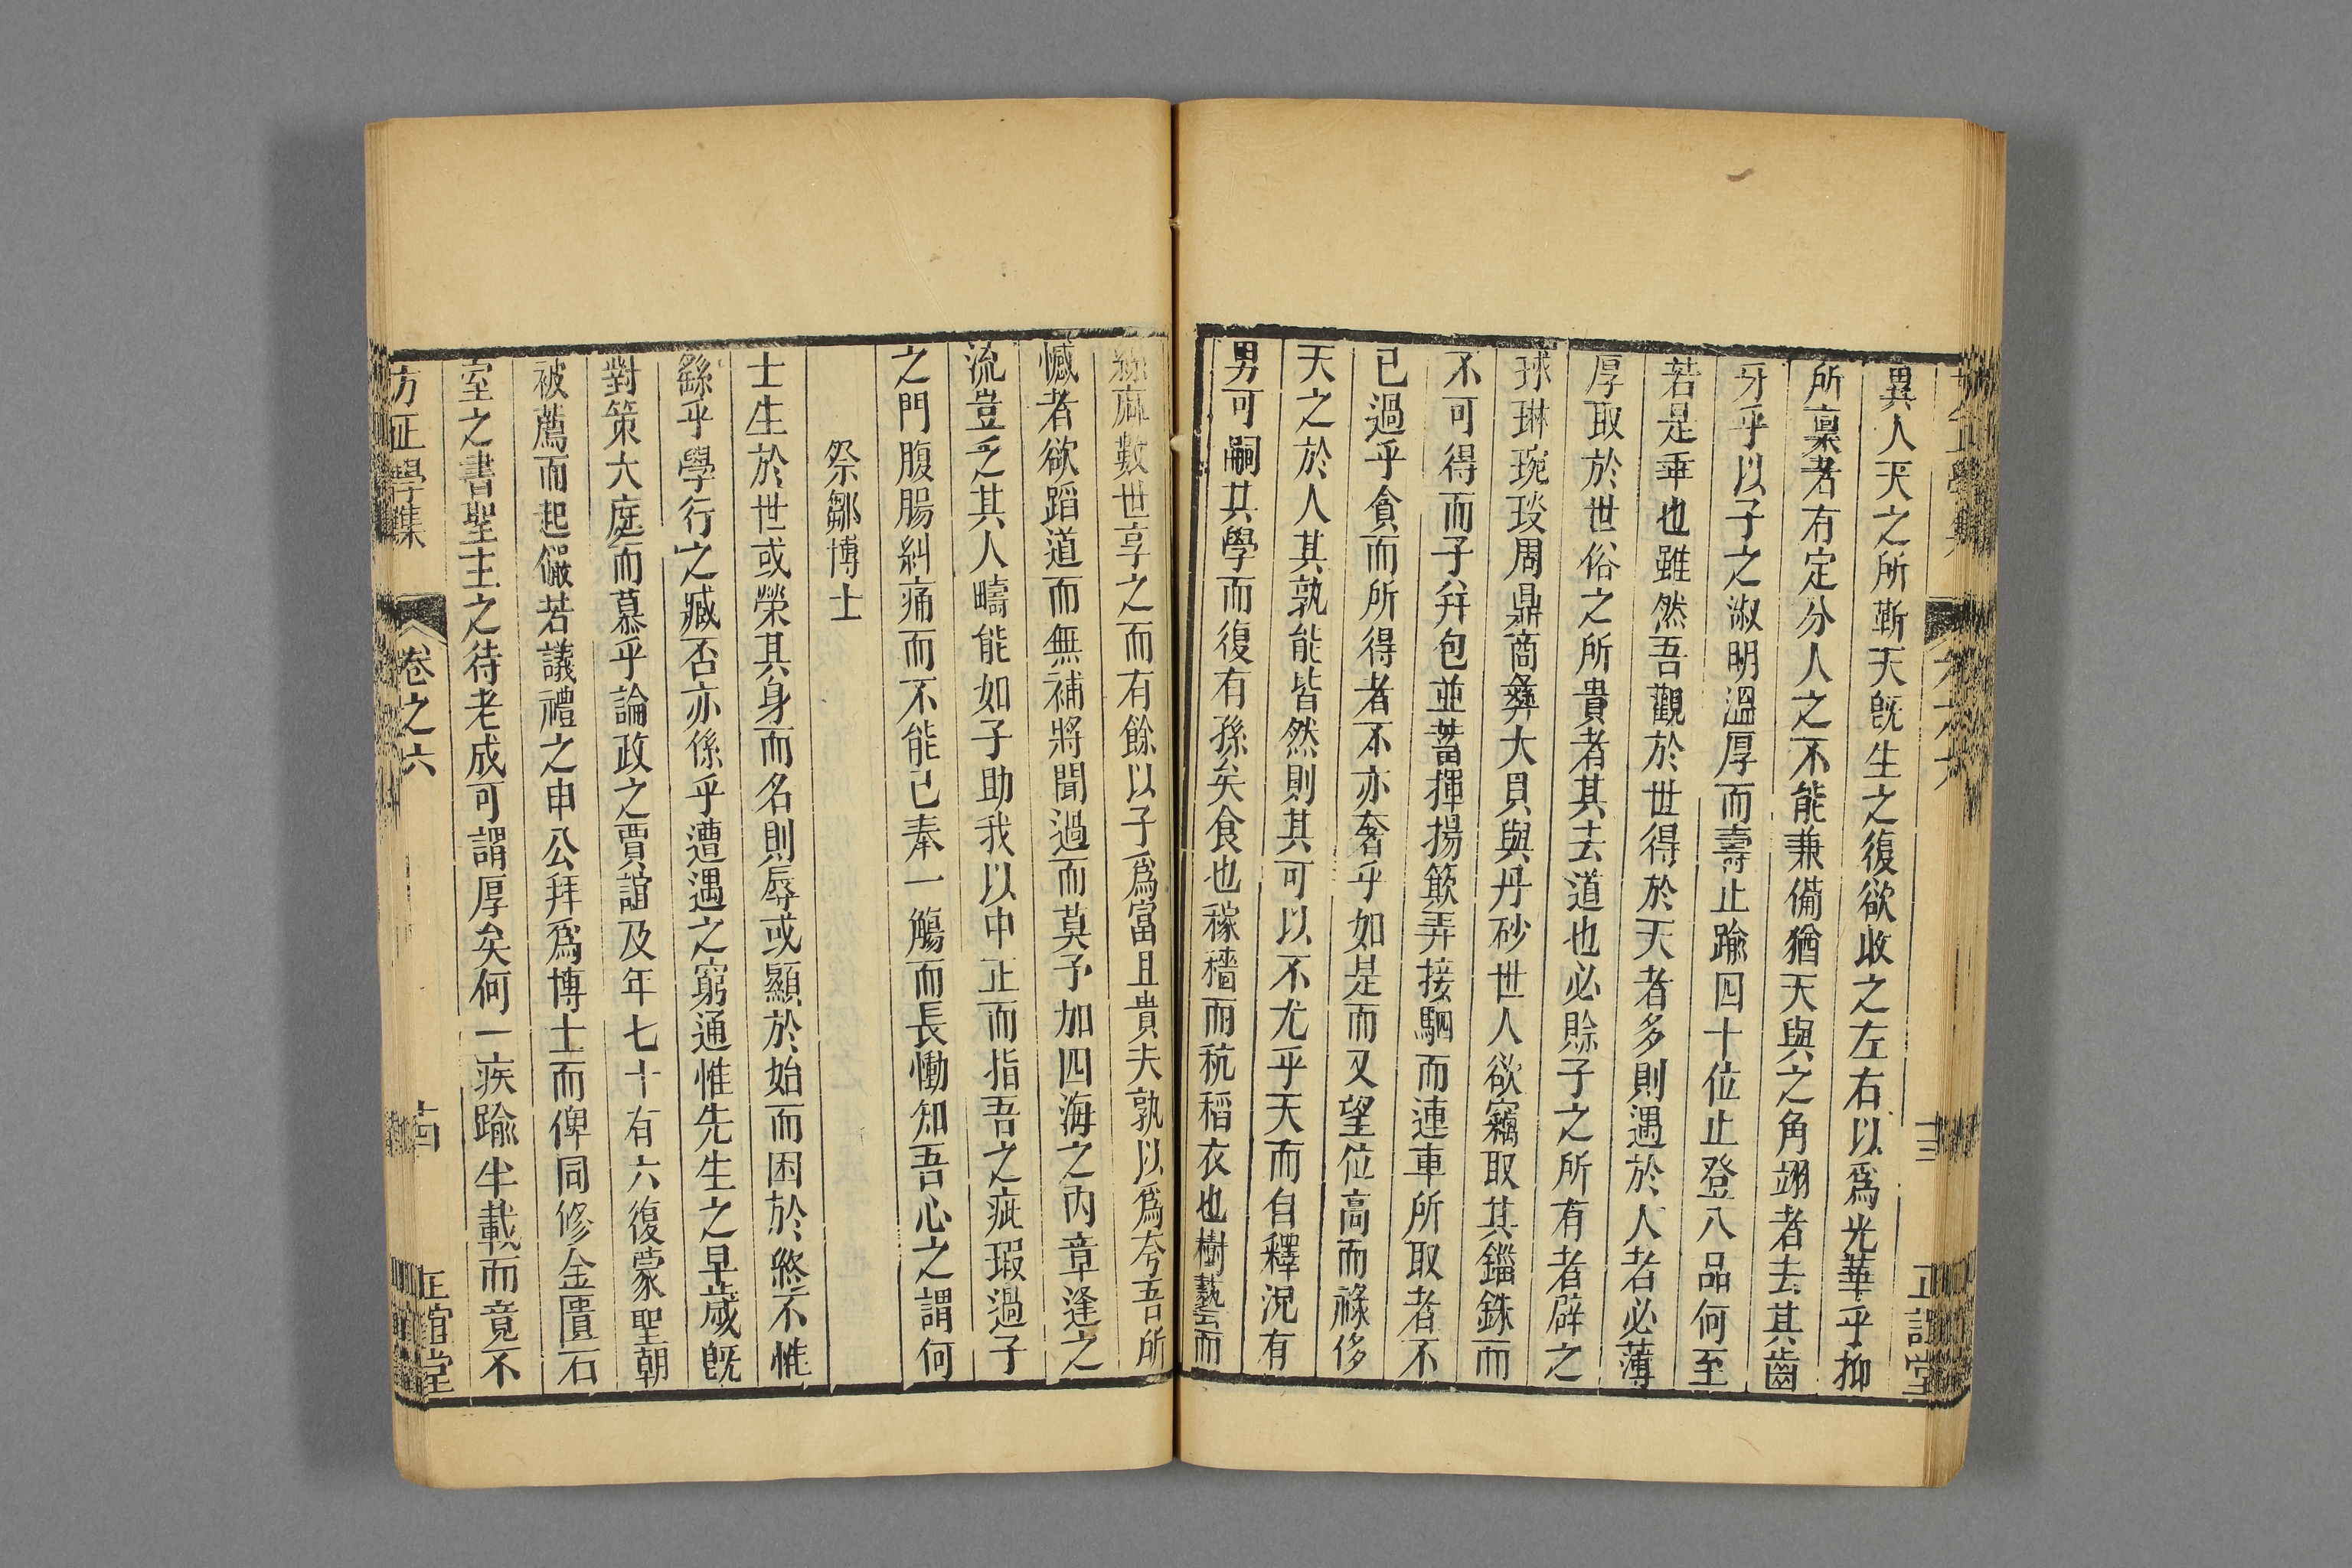 異人天之所靳天旣生之復欲收之左右以爲光華乎抑
所稟者有定分人之不能兼備猶天與之角翊者去其齒
牙乎以子之淑明溫厚而壽止踰四十位止登八品何至
若是乖也雖然吾觀於世得於天者多則遇於人者必薄
厚取於世俗之所貴者其去道也必賒子之所有者辟之
球琳琬琰周鼎商彝大貝與丹砂世人欲竊取其錙銖而
不可得而子幷包並蓄揮揚簸弄接駟而連車所取者不
已過乎貪而所得者不亦奢乎如是而又望位高而祿侈
天之於人其孰能皆然則其可以不尤乎天而自釋況有
男可嗣其學而復有孫矣食也稼穡而秔稻衣也樹藝而
絲麻數世享之而有餘以子爲富且貴夫孰以爲夸吾所
憾者欲蹈道而無補將聞過而莫予加四海之內章逢之
流豈乏其人疇能如子助我以中正而指吾之疵瑕過子
之門腹腸糾痛而不能已奉一觴而長慟知吾心之謂何
祭鄒博士
士生於世或榮其身而名則辱或顯於始而困於終不惟
繇乎學行之臧否亦係乎遭遇之窮通惟先生之早歲旣
對策大庭而慕乎論政之賈誼及年七十有六復蒙聖朝
被薦而起儼若議禮之申公拜爲博士而俾同修金匱石
室之書聖主之待老成可謂厚矣何一疾踰半載而竟不
方正學集
卷之六
十四
正誼堂